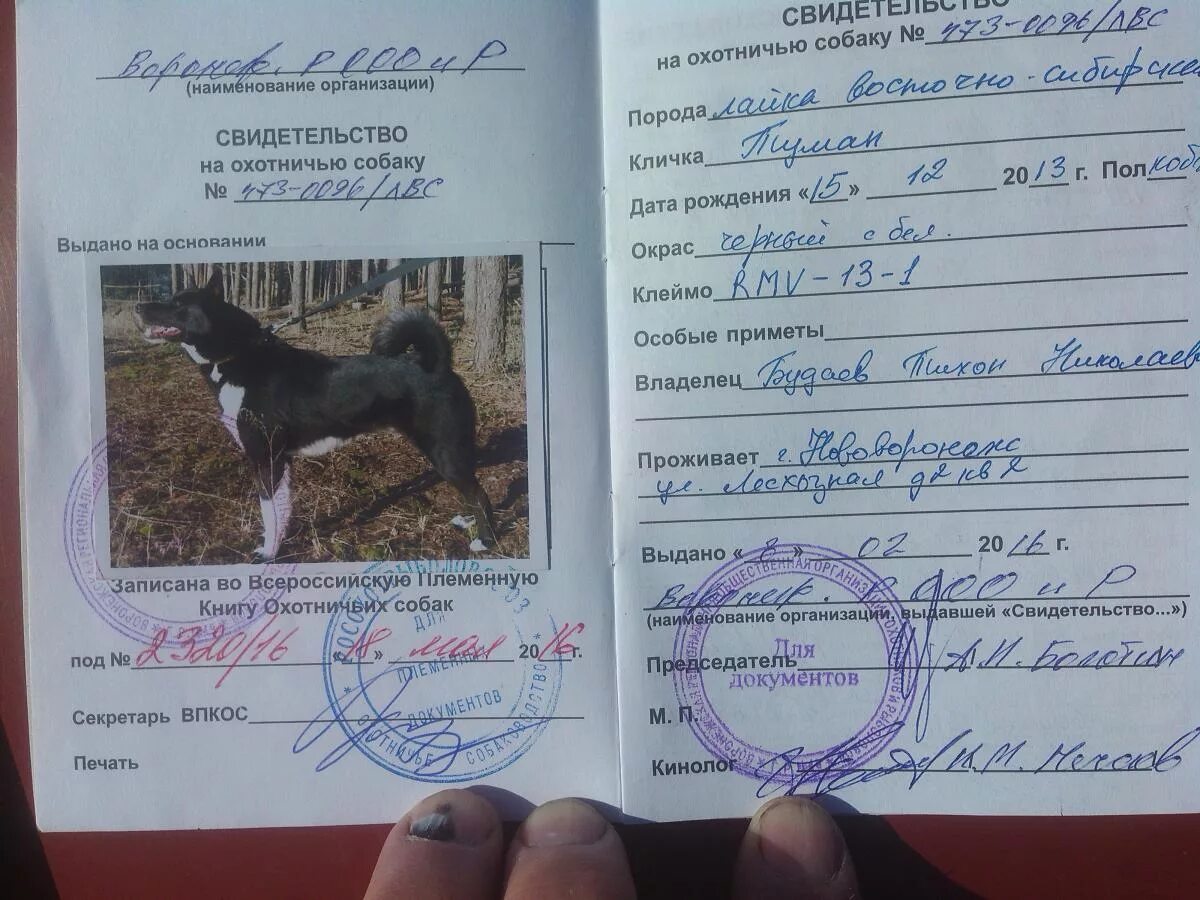 Воронеж. РОООиР
(наименование организации)
СВИДЕТЕЛЬСТВО
на охотничью собаку
№ 473-0096/ЛВС
Выдано на основании
Записана во Всероссийскую Племенную
Книгу Охотничьих собак
под № 2320/16 «18» мая 2016 г.
Секретарь ВПКОС
Печать
ДЛЯ
ПЛЕМЕННЫХ
ДОКУМЕНТОВ
ОХОТНИЧЬЕ СОБАКОВОДСТВО
СВИДЕТЕЛЬСТВО
на охотничью собаку № 473-0096/ЛВС
Порода лайка восточно-сибирская
Кличка Туман
Дата рождения «15» 12 2013 г. Пол кобе
Окрас черный с бел.
Клеймо RMV-13-1
Особые приметы
Владелец Будаев Тихон Николаев
Проживает г. Нововоронеж
ул. д2 кв 2
Выдано «8» 02 2016 г.
Воронеж. РОООиР
(наименование организации, выдавшей «Свидетельство...»)
Председатель А.И. Болотин
М. П.
Кинолог
Для
документов